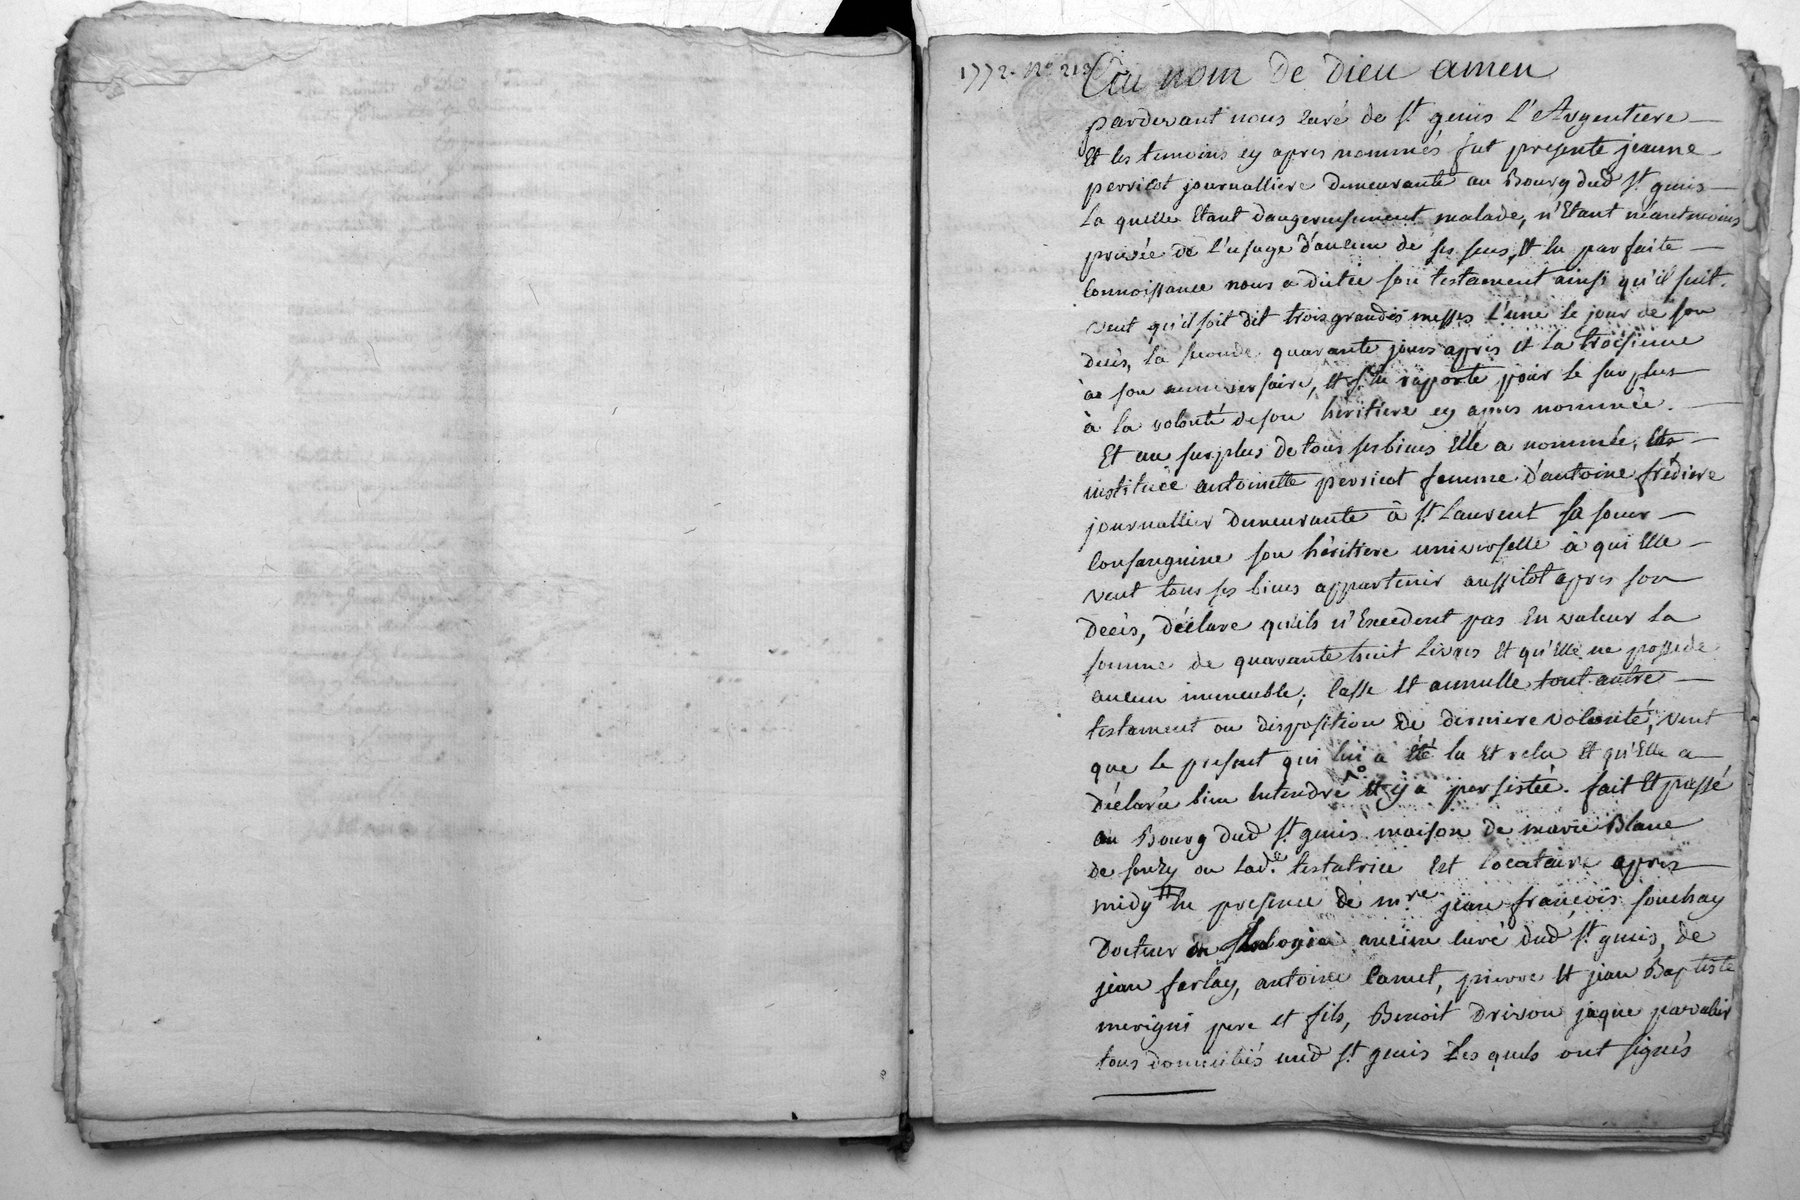 1772. N° 213
Au nom de Dieu amen
pardevant nous curé de St genis L'Argentiere
Et les temoins cy apres nommés fut presente jeanne
perricot journalliere demeurante au Bourg dud St genis
La quelle Etant dangereusement malade, n'Etant néantmoins
privée de l'usage d'aucun de ses sens, Et la parfaite
connoissance nous a dictée son testament ainsi qu'il suit.
veut qu'il soit dit trois grandes messes l'une le jour de son
décès, la seconde quarante jours apres et la troisieme
à son anniversaire, et s'en raporte pour le surplus
à la volonté de son héritiere cy apres nommée.
Et au surplus de tous ses biens Elle a nommée, Et
instituée antoinette perricot femme d'antoine frédiere
journallier demeurante à St Laurent sa soeur
consanguine son héritiere universelle à qui Elle
veut tous ses biens appartenir aussitot apres son
Décès, déclare qu'ils n'Excedent pas En valeur la
somme de quarante huit Livres Et qu'Elle ne possede
aucun immeuble; Casse Et annulle tout autre
testament ou disposition de derniere volonté, veut
que le present qui lui a été lu Et relu Et qu'Elle a
Déclarée bien Entendre Et y a persistée. fait Et passé
au Bourg dud St genis maison de marie Blanc
de souzy ou lad.e testatrice Est locataire apres
midy En presence de mre jean françois souchay
Docteur en theologie ancien curé dud St genis, de
jean ferlay, antoine Camet, pierre Et jean Baptiste
merigni pere et fils, Benoit Drivon jaque
tous domiciliés aud St genis Les quels ont signés